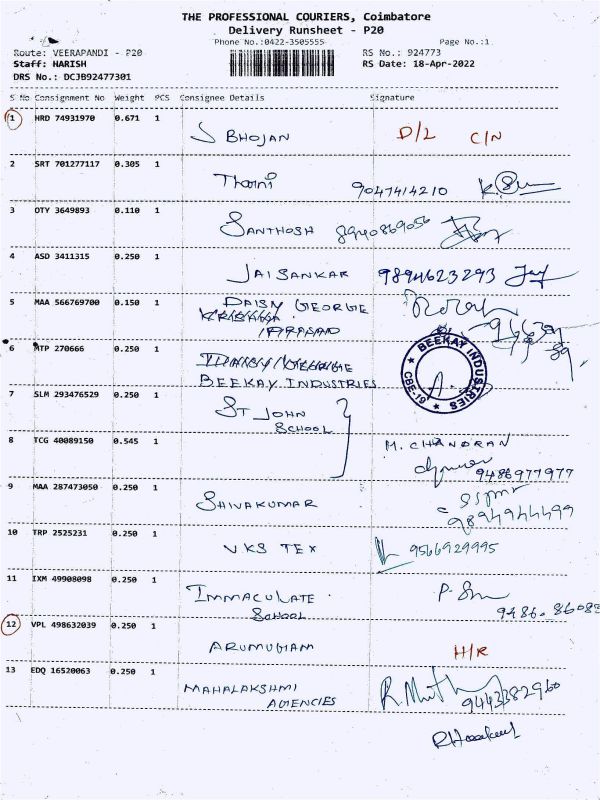 THE PROFESSIONAL COURIERS, Coimbatore
Delivery Runsheet - P20
Phone No.:0422-3505555 Page No.:1
Route: VEERAPANDI - P20 RS No.: 924773
Staff: HARISH RS Date: 18-Apr-2022
DRS No.: DCJB92477301
S No Consignment No Weight PCS Consignee Details Signature
1 HRD 74931970 0.671 1
J BHOJAN D/L C/N
2 SRT 701277117 0.305 1
Tharni 9047414210
3 OTY 3649893 0.110 1
SANTHOSH 8940869056
4 ASD 3411315 0.250 1
JAISANKAR 9894623293
5 MAA 566769700 0.150 1
DAISY GEORGE
KRISHNA
PRASAD
6 MTP 270666 0.250 1
BEEKAY INDUSTRIES
BEEKAY INDUSTRIES
CBE-19
7 SLM 293476529 0.250 1
ST JOHN
SCHOOL
8 TCG 40089150 0.545 1
M. CHANDRAN
9486977977
9 MAA 287473050 0.250 1
SHIVAKUMAR 9894944499
10 TRP 2525231 0.250 1
VKS TEX 9566929995
11 IXM 49908098 0.250 1
IMMACULATE
SCHOOL
12 VPL 498632039 0.250 1
ARUMUGAM H/R
13 EDQ 16520063 0.250 1
MAHALAKSHMI
AGENCIES
R. Muth 9443382960